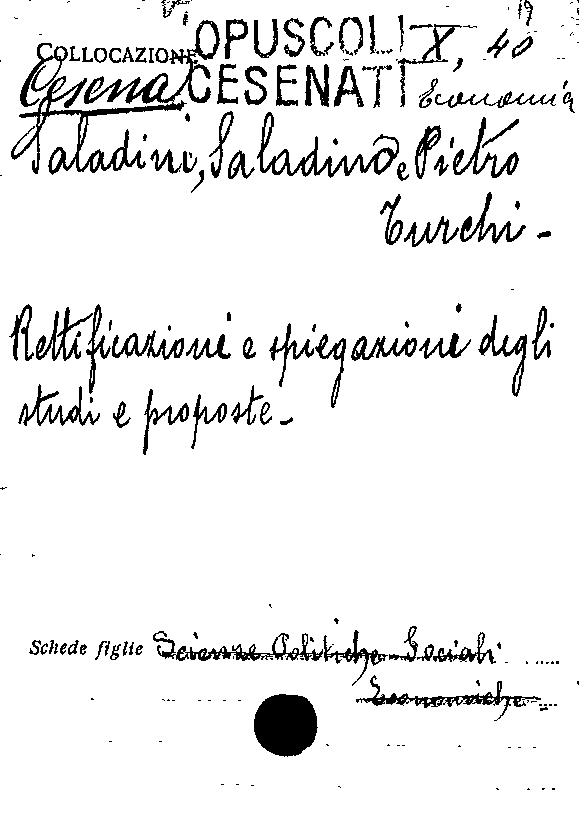 19
COLLOCAZIONE OPUSCOLI X, 40
Cesena CESENATI Economia
Saladini, Saladino e Pietro
Turchi -
Rettificazione e spiegazione degli
studi e proposte -
Schede figlie Scienze Politiche Sociali
Economiche